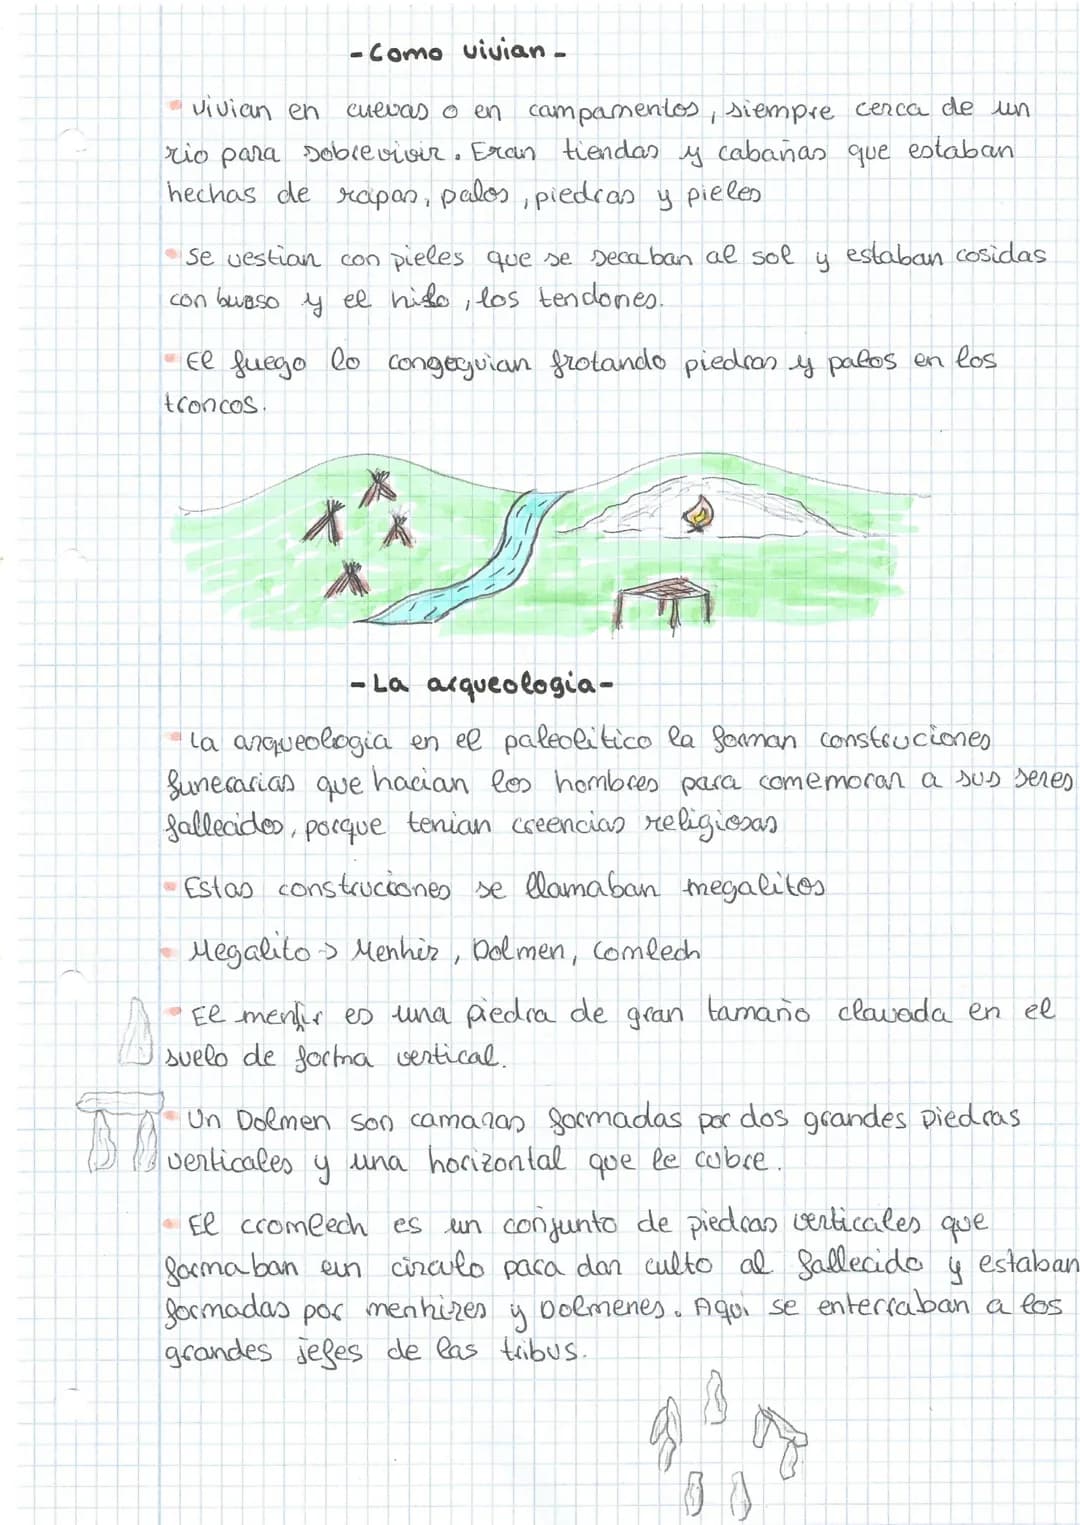 - Como vivian -
• vivian en cuevas o en campamentos, siempre cerca de un
rio para sobrevivir. Eran tiendas y cabañas que estaban
hechas de rapas, palos, piedras y pieles
• Se vestian con pieles que se secaban al sol y estaban cosidas
con y el hilo, los tendones.
• El fuego lo congeguian frotando piedras y palos en los
troncos.
- La arqueologia -
• La arqueologia en el paleolitico la forman construciones
funerarias que hacian los hombres para comemorar a sus seres
fallecidos, porque tenian creencias religiosas
• Estas construciones se llamaban megalitos
• Megalito -> Menhir, Dolmen, Comlech
• El menhir es una piedra de gran tamaño clavada en el
suelo de forma vertical.
• Un Dolmen son camaras formadas por dos grandes piedras
verticales y una horizontal que le cubre.
• El cromlech es un conjunto de piedras verticales que
formaban un circulo para dar culto al fallecido y estaban
formadas por menhires y Dolmenes. Aqui se enterraban a los
grandes jefes de las tribus.